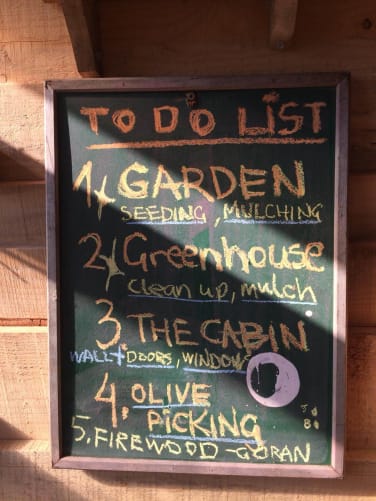 TO DO LIST
1, GARDEN
SEEDING, MULCHING
2, Greenhouse
clean up, mulch
3 THE CABIN
WALL+ DOORS, WINDOWS
4, OLIVE
PICKING
5, FIREWOOD - GORAN